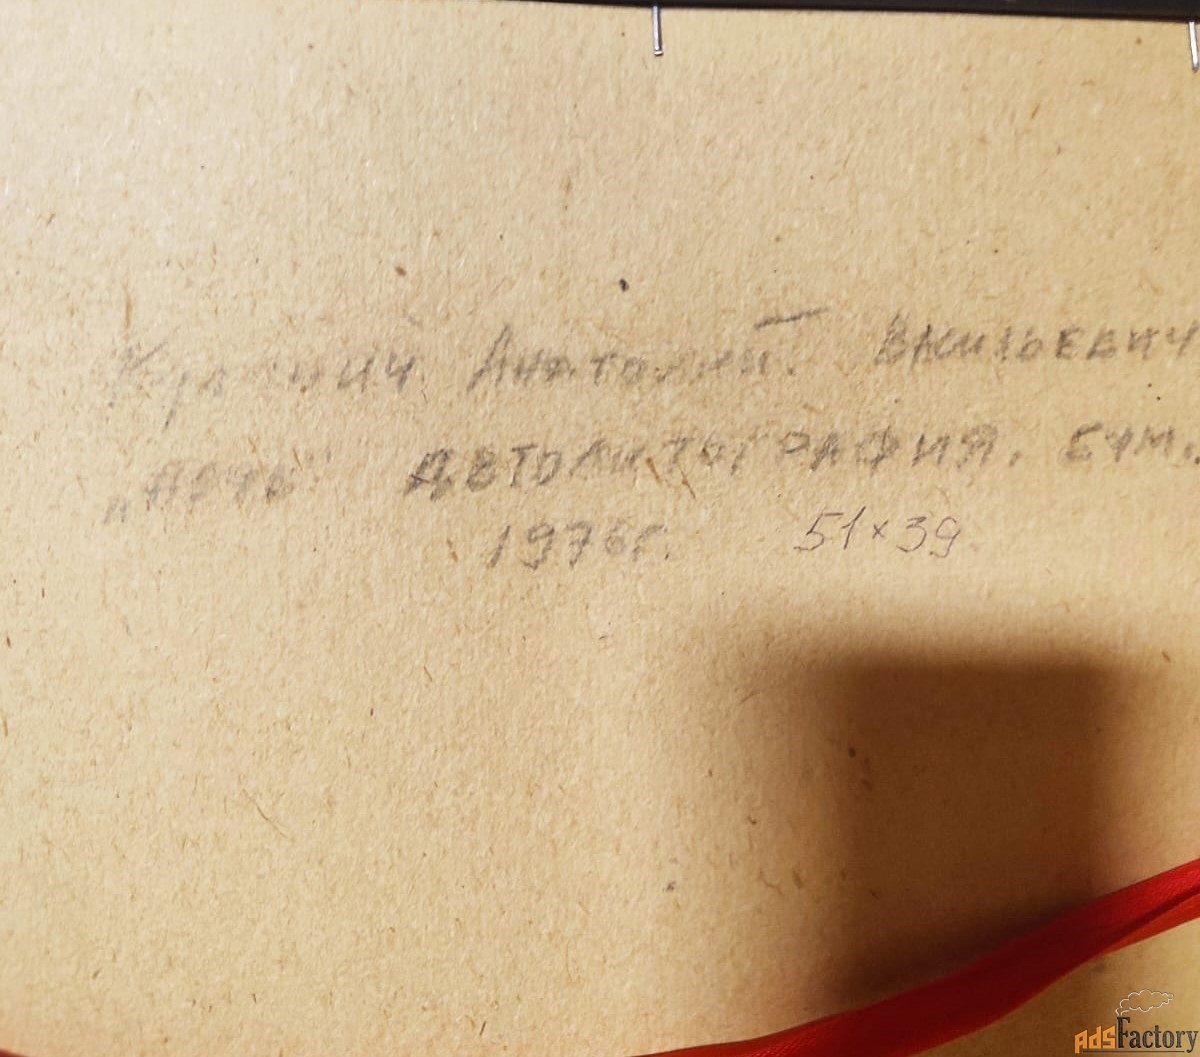 Анатолий. Васильевич
"Ночь" Автолитография, бум.
1976г. 51×39
AdsFactory